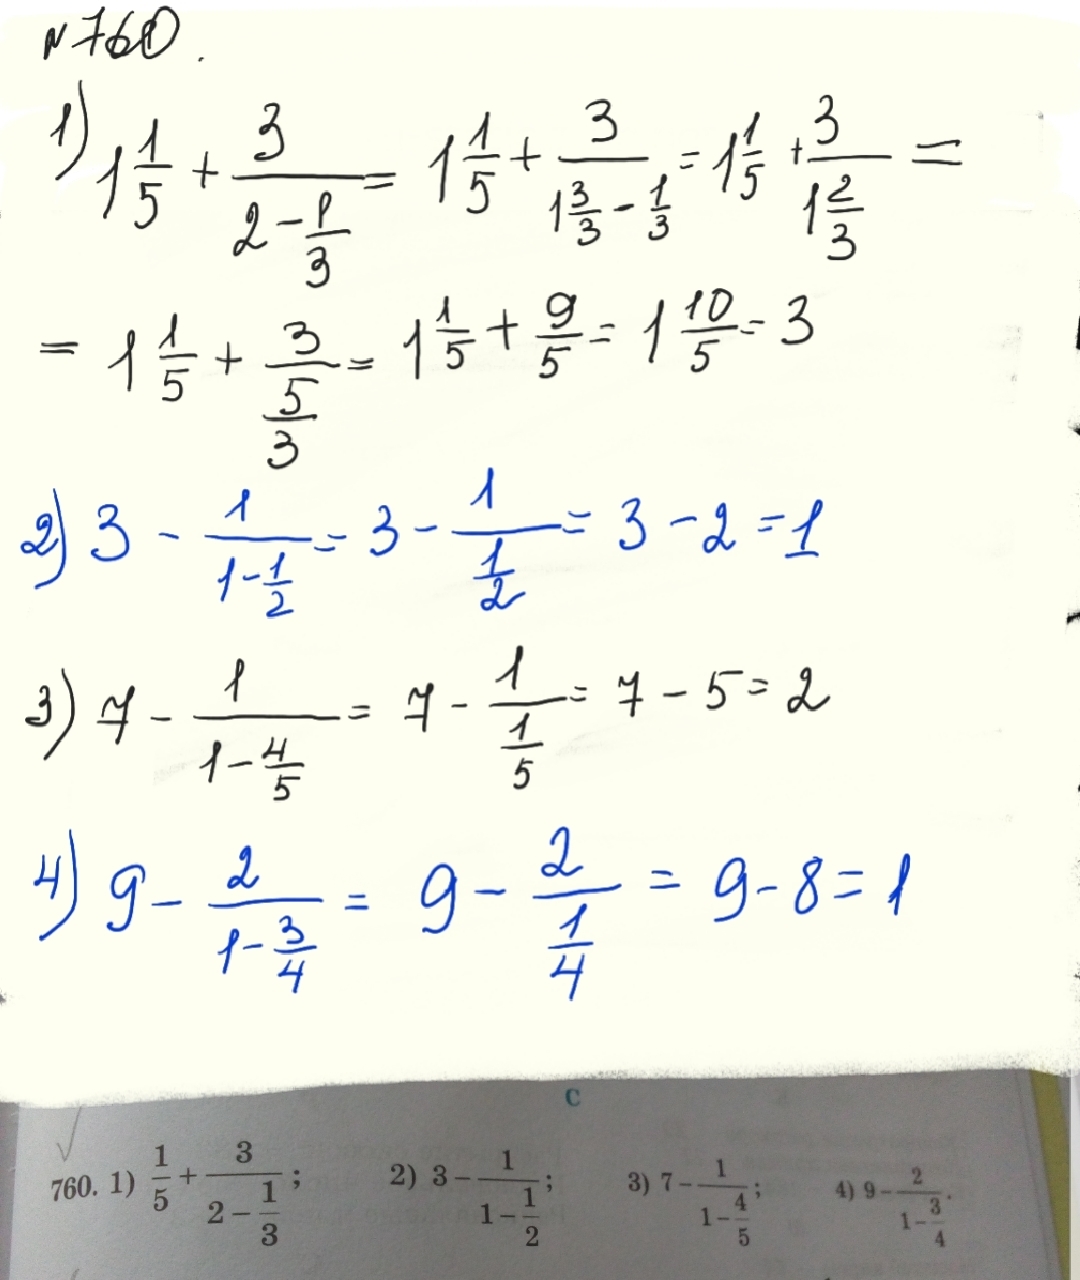 №760.
1) 1 1/5 + 3/(2 - 1/3) = 1 1/5 + 3/(1 3/3 - 1/3) = 1 1/5 + 3/(1 2/3) =
= 1 1/5 + 3/(5/3) = 1 1/5 + 9/5 = 1 10/5 = 3
2) 3 - 1/(1 - 1/2) = 3 - 1/(1/2) = 3 - 2 = 1
3) 7 - 1/(1 - 4/5) = 7 - 1/(1/5) = 7 - 5 = 2
4) 9 - 2/(1 - 3/4) = 9 - 2/(1/4) = 9 - 8 = 1
С
760. 1) 1/5 + 3/(2 - 1/3); 2) 3 - 1/(1 - 1/2); 3) 7 - 1/(1 - 4/5); 4) 9 - 2/(1 - 3/4).